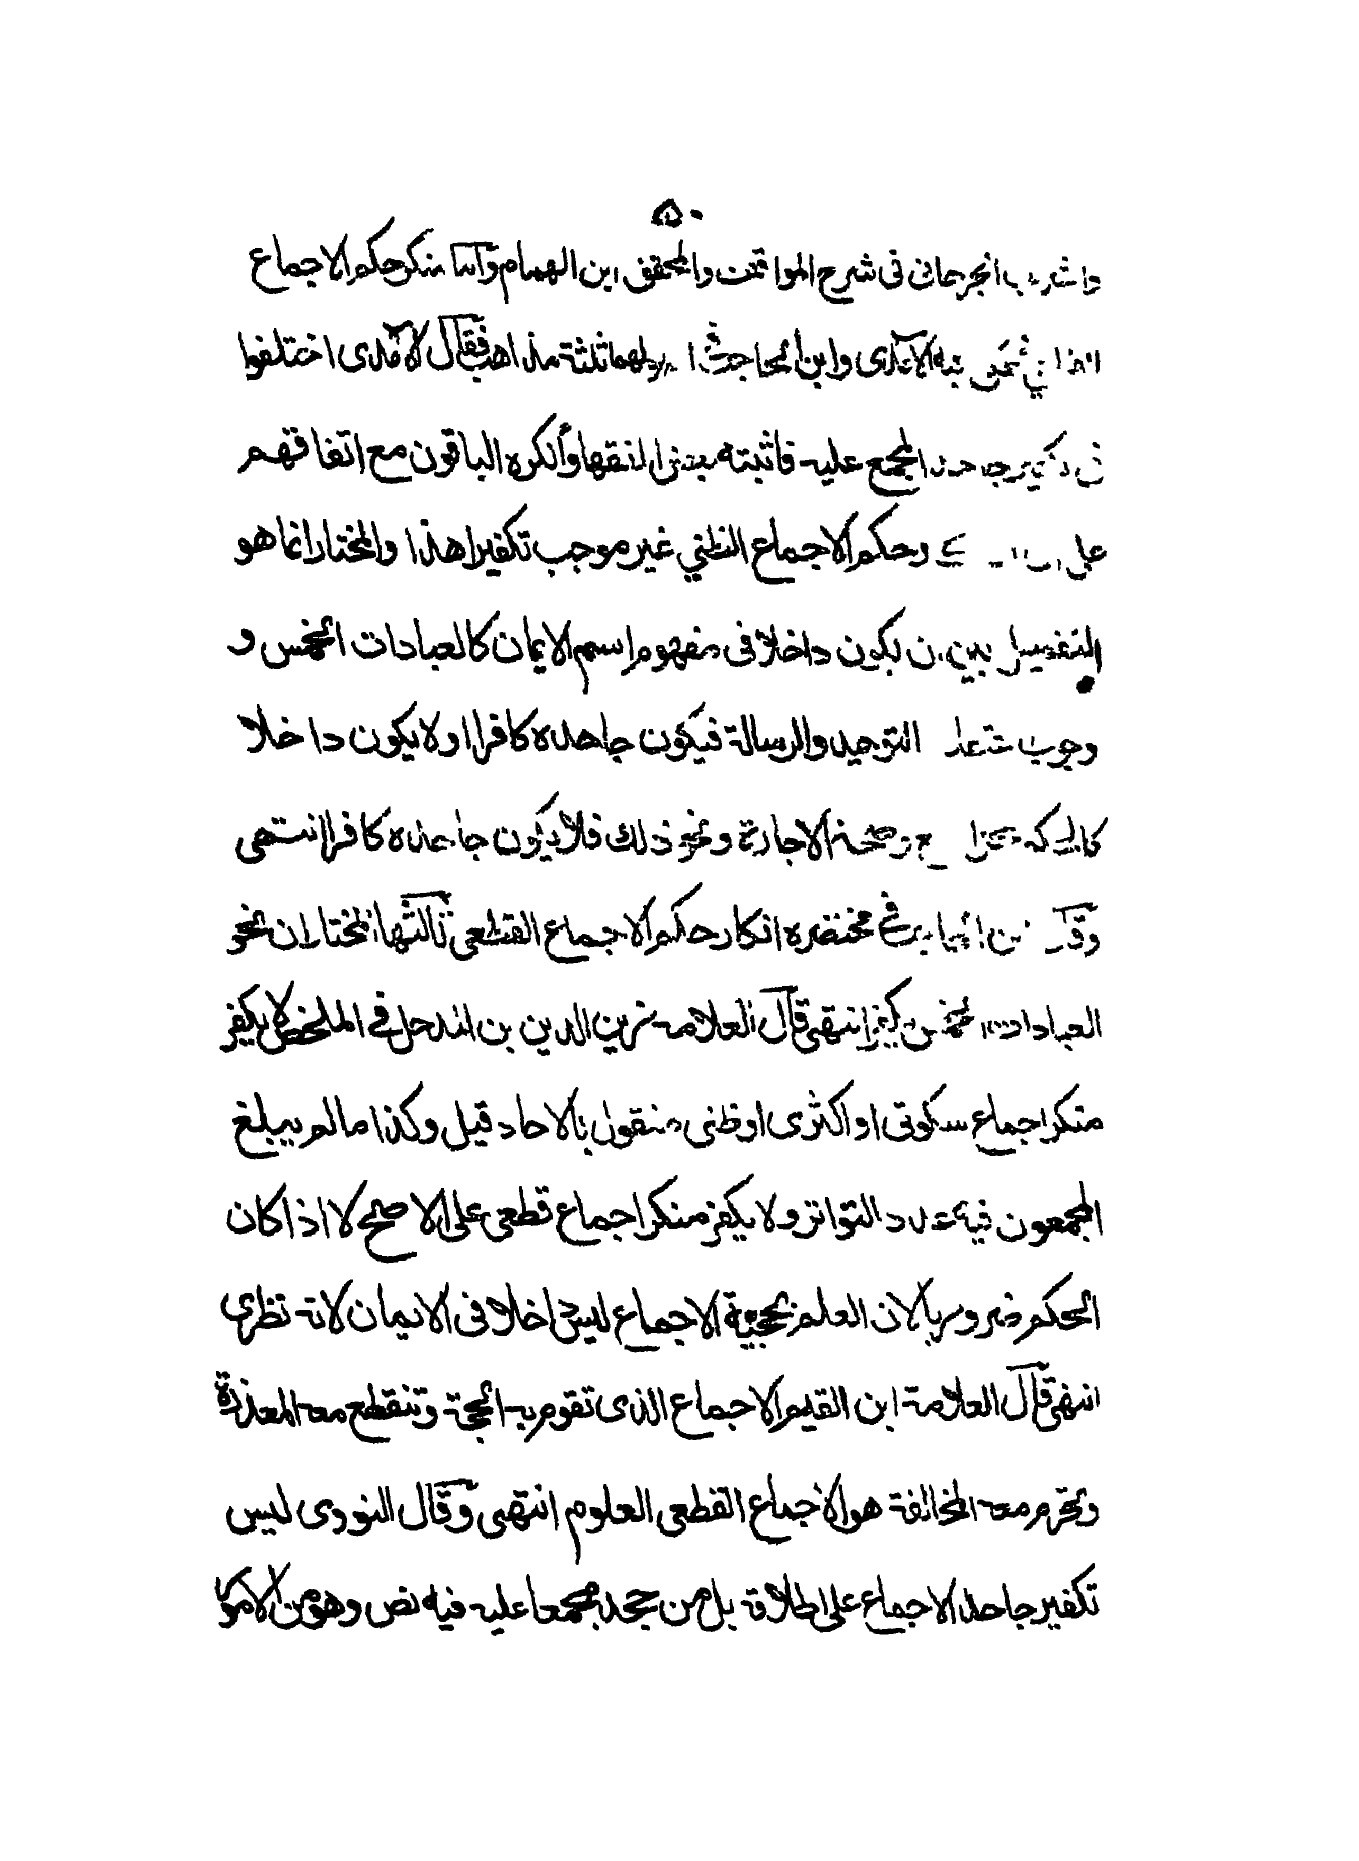 ٥٠
الجرجاني في شرح المواقف والمحقق ابن الهمام وآما منكر حكم الاجماع
الامدى وابن الحاجب ثلثة مذاهب فقال الامدى اختلفوا
المجمع عليه فاثبته بعض الفقها وأنكره الباقون مع اتفاقهم
على وحكم الاجماع الظني غير موجب تكفيرا هذا والمختار انما هو
التفصيل بين ان يكون داخلا في مفهوم اسم الايمان كالعبادات الخمس و
وجوب التوحيد والرسالة فيكون جاحده كافرا او لا يكون داخلا
وصحة الاجارة ونحو ذلك فلا يكون جاحده كافرا انتهى
وقال في مختصره انكار حكم الاجماع القطعي ثالثها المختار ان نحو
العبادات يكفر انتهى قال العلامة زين الدين بن في الملخص لا يكفر
منكر اجماع سكوتى او اكثرى او ظنى منقول بالاحاد قيل وكذا مالم يبلغ
المجمعون فيه عدد التواتر ولا يكفر منكر اجماع قطعى على الاصح لا اذا كان
الحكم ضروريا لان العلم بحجية الاجماع ليس داخلا فى الايمان لانه نظرى
انتهى قال العلامة ابن القيم الاجماع الذى تقوم به الحجة وتنقطع معه المعذرة
وتحرم معه المخالفة هو الاجماع القطعى العلوم انتهى وقال النووى ليس
تكفير جاحد الاجماع على اطلاقه بل من جحد مجمعا عليه فيه نص وهو من الامور